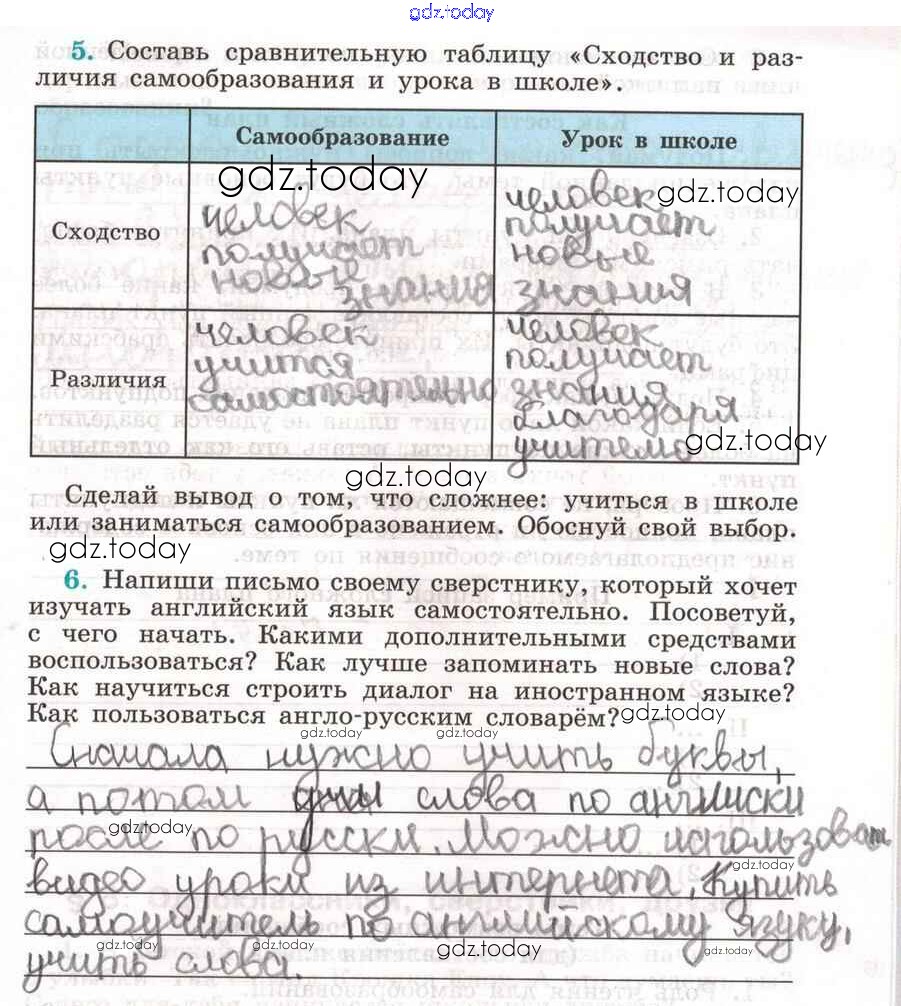 gdz.today
5. Составь сравнительную таблицу «Сходство и раз-
личия самообразования и урока в школе».
Самообразование
Урок в школе
Сходство
gdz.today
человек
получает
новые
знания
человек
gdz.today
получает
новые
знания
Различия
человек
учится
самостоятельно
человек
получает
знания
благодаря
учителю
gdz.today
gdz.today
Сделай вывод о том, что сложнее: учиться в школе
или заниматься самообразованием. Обоснуй свой выбор.
gdz.today
6. Напиши письмо своему сверстнику, который хочет
изучать английский язык самостоятельно. Посоветуй,
с чего начать. Какими дополнительными средствами
воспользоваться? Как лучше запоминать новые слова?
Как научиться строить диалог на иностранном языке?
Как пользоваться англо-русским словарём?
gdz.today
gdz.today
gdz.today
Сначала нужно учить буквы,
а потом слова по английски
после по русски. Можно использоват
gdz.today
gdz.today
видео уроки из интернета. Купить
самоучитель по английскому языку,
учить слова.
gdz.today
gdz.today
gdz.today